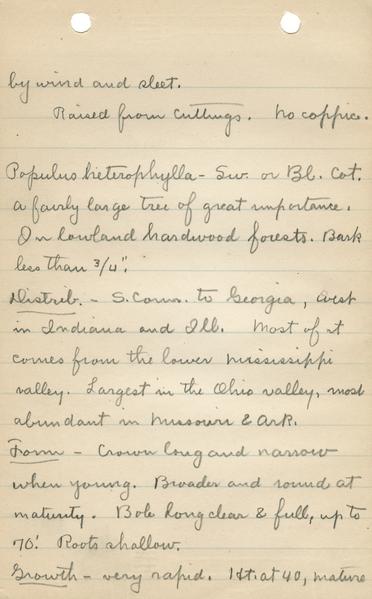 by wind and sleet.
Raised from cuttings. No coppice.
Populus heterophylla - Sw. or Bl. Cot.
a fairly large tree of great importance.
In lowland hardwood forests. Bark
less than 3/4".
Distrib. - S. Conn. to Georgia, West
in Indiana and Ill. Most of it
comes from the lower Mississippi
valley. Largest in the Ohio valley, most
abundant in Missouri & Ark.
Form - Crown long and narrow
when young. Broader and round at
maturity. Bole long clear & full, up to
70'. Roots shallow.
Growth - very rapid. Ht. at 40, mature